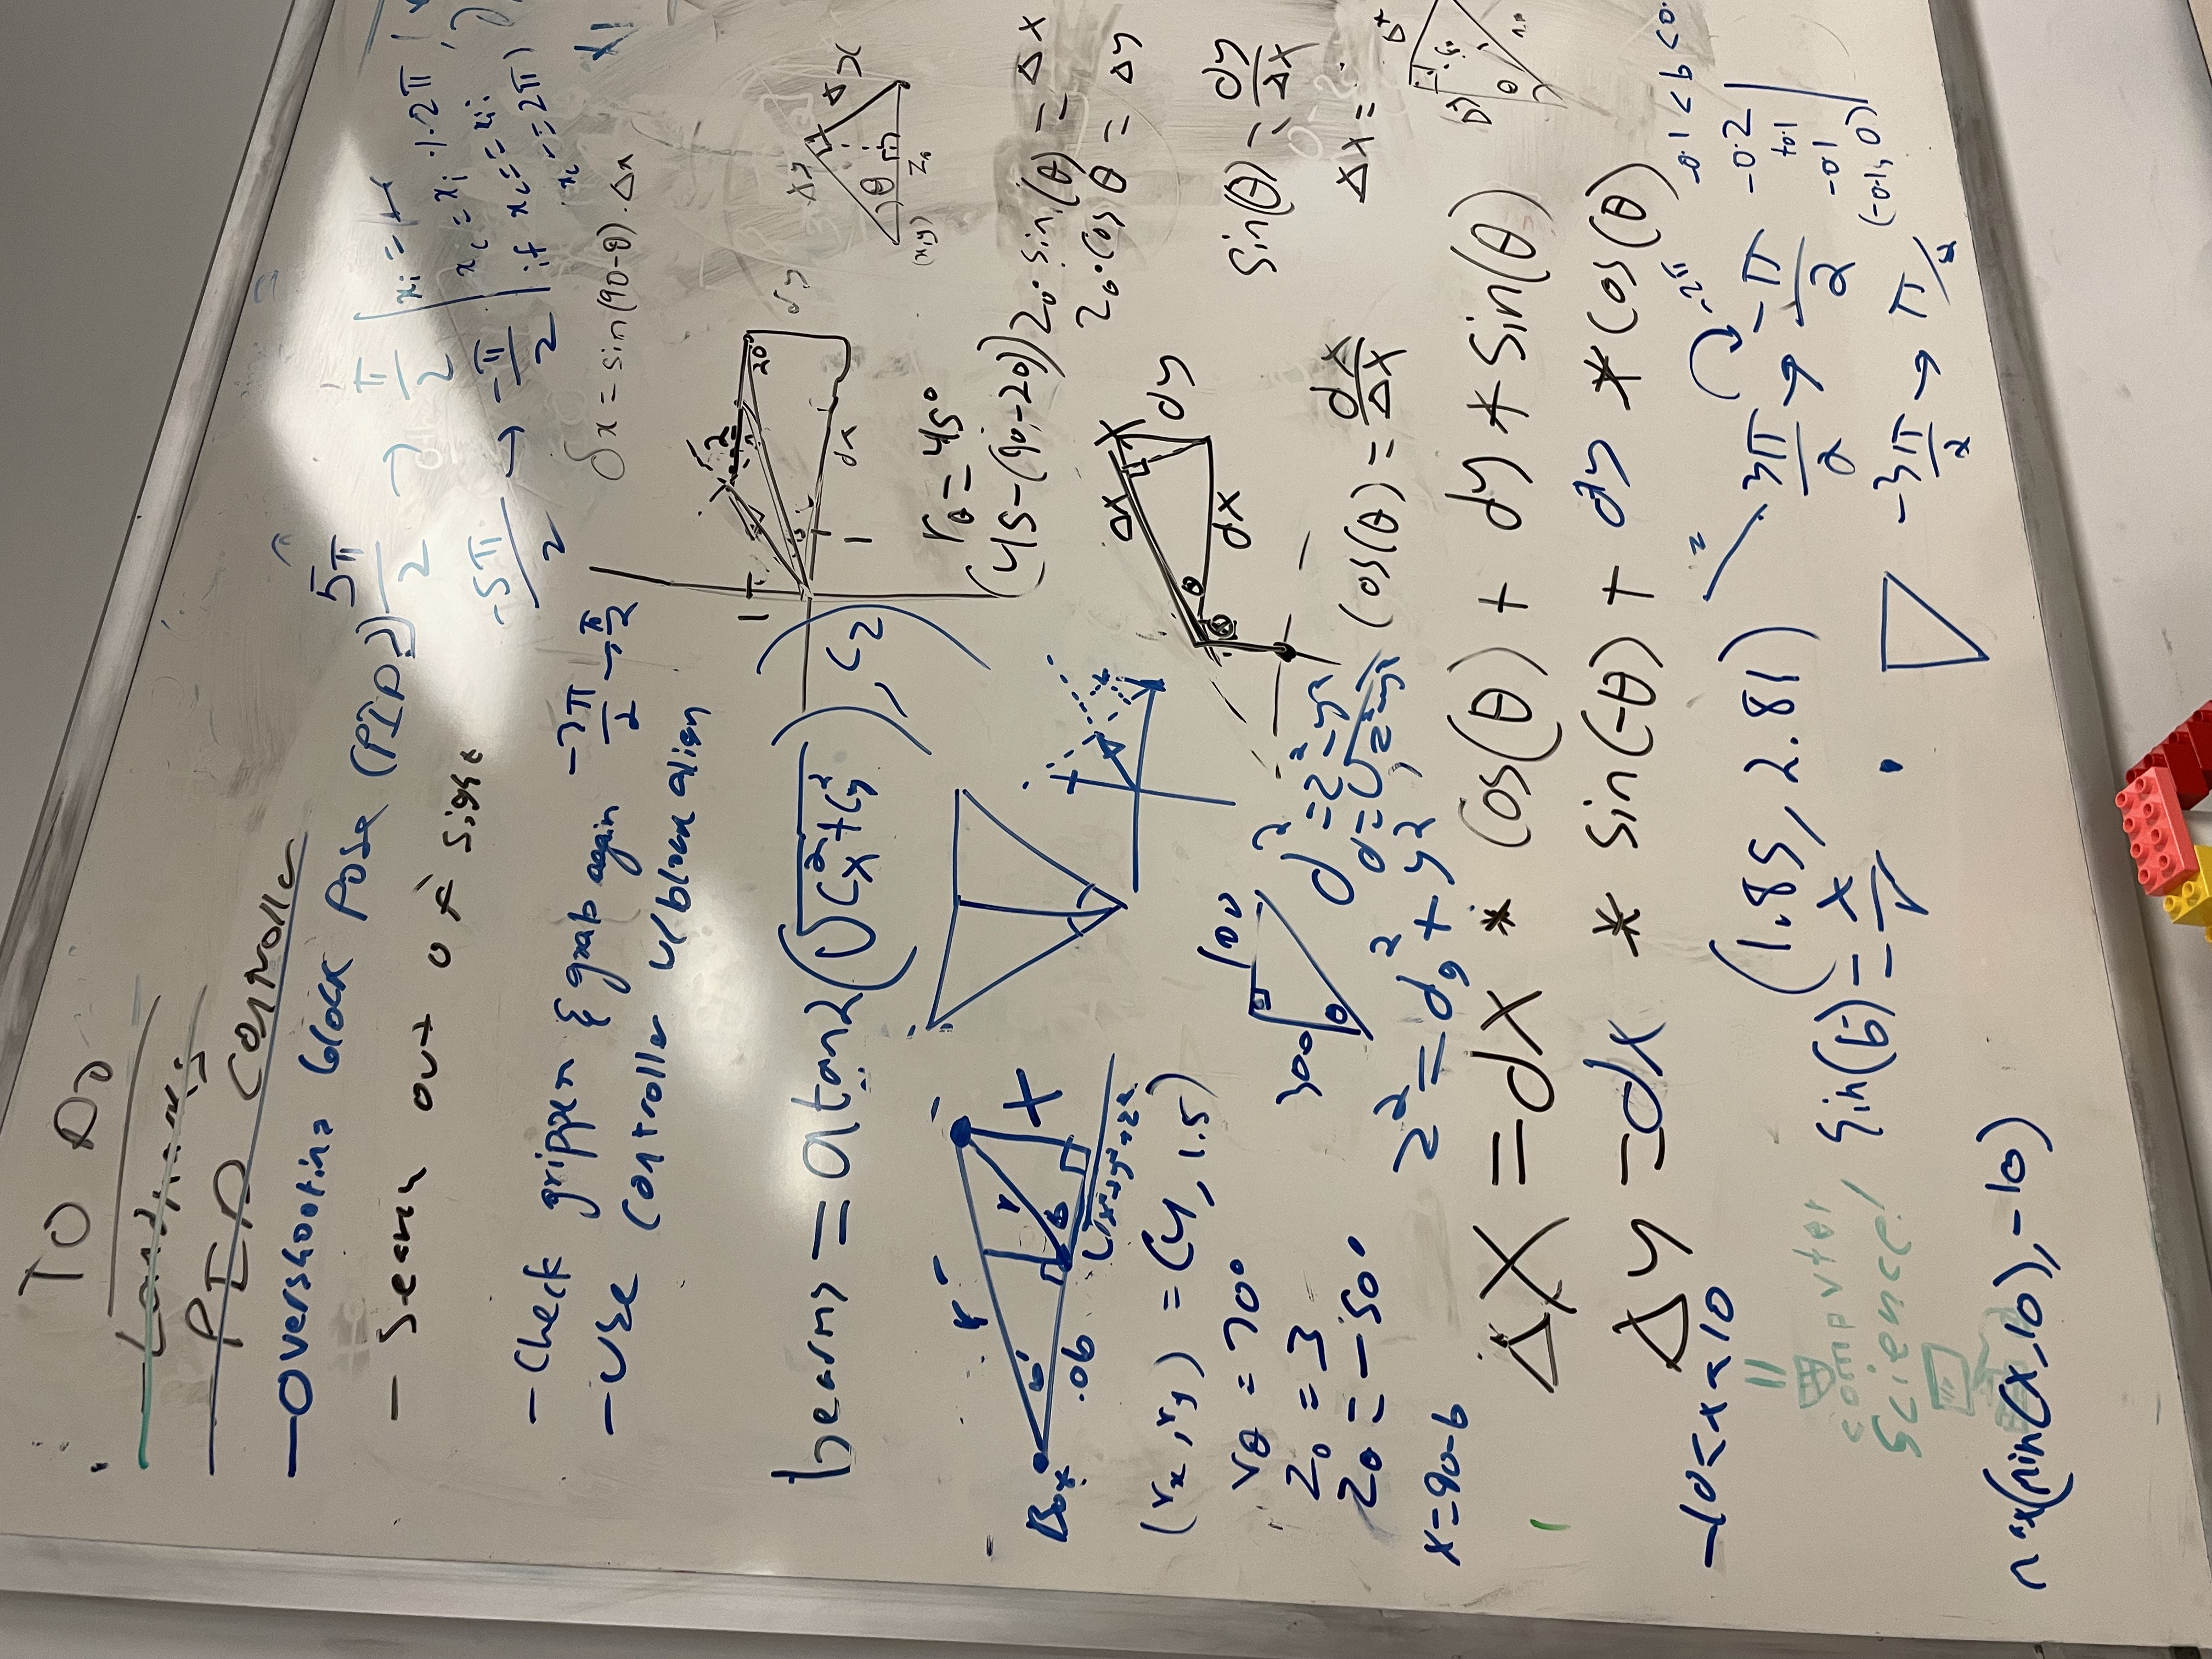 TO DO
- Landmarks
- PID Controller
- Overshooting block Pose (PID?)
- Search out of sight
- Check gripper & grab again
- Use controller w/ block align
5π/2 → π/2
-5π/2 → -π/2
-3π/2 → π/2
x_c = x_i % 2π
if x_c == x_i:
x_c -= 2π
δx = sin(90-θ) · Δx
= atan2(√(C_x² + C_y²), C_z)
1
2
20°
1
dx
dy
Δy
Δx
θ
(x,y)
Z_o
r_θ = 45°
(45-(90-20))
Z_o · sin(θ) = Δx
Z_o · cos θ = Δy
r'
r
b'
b
x
Box
.06
(r_x, r_y) = (4, 1.5)
r_θ = 70°
Z_o = 3
Z_θ = -50°
x = 90-b
100
300
θ
d² = z² - y²
d = √(z² - y²)
z² = d_y² + y²
Δx
dy
θ
dx
sin(θ) = dy/Δx
cos(θ) = dx/Δx
Δx =
Δx
Δy
θ
ΔX = dX * cos(θ) + dy * sin(θ)
Δy = dx * sin(-θ) + dy * cos(θ)
-10 < x < 10
computer
science!
(1.85, 2.81)
sin(b) = x/r
-2π
3π/2 → -π/2
-3π/2 → π/2
-0.1 < b < 0.
-0.2
to.1
-0.1
(-0.1, 0)
max(min(x,10),-10)